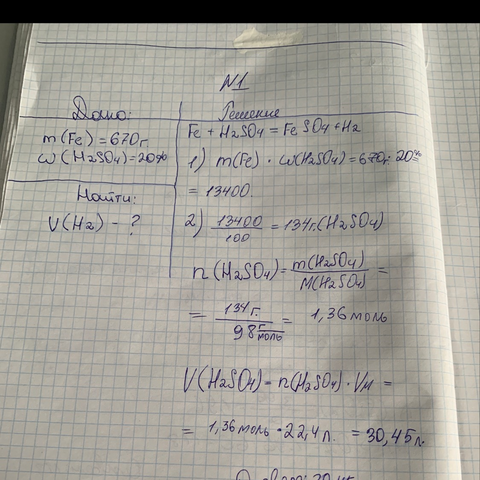 N1
Дано:
m(Fe) = 670г
ω(H2SO4) = 20%
Найти:
V(H2) - ?
Решение
Fe + H2SO4 = FeSO4 + H2
1) m(Fe) · ω(H2SO4) = 670г · 20% =
= 13400.
2) 13400/100 = 134г.(H2SO4)
n(H2SO4) = m(H2SO4)/M(H2SO4) =
= 134г./98 г/моль = 1,36 моль
V(H2SO4) = n(H2SO4) · Vм =
= 1,36 моль · 22,4 л. = 30,45 л.